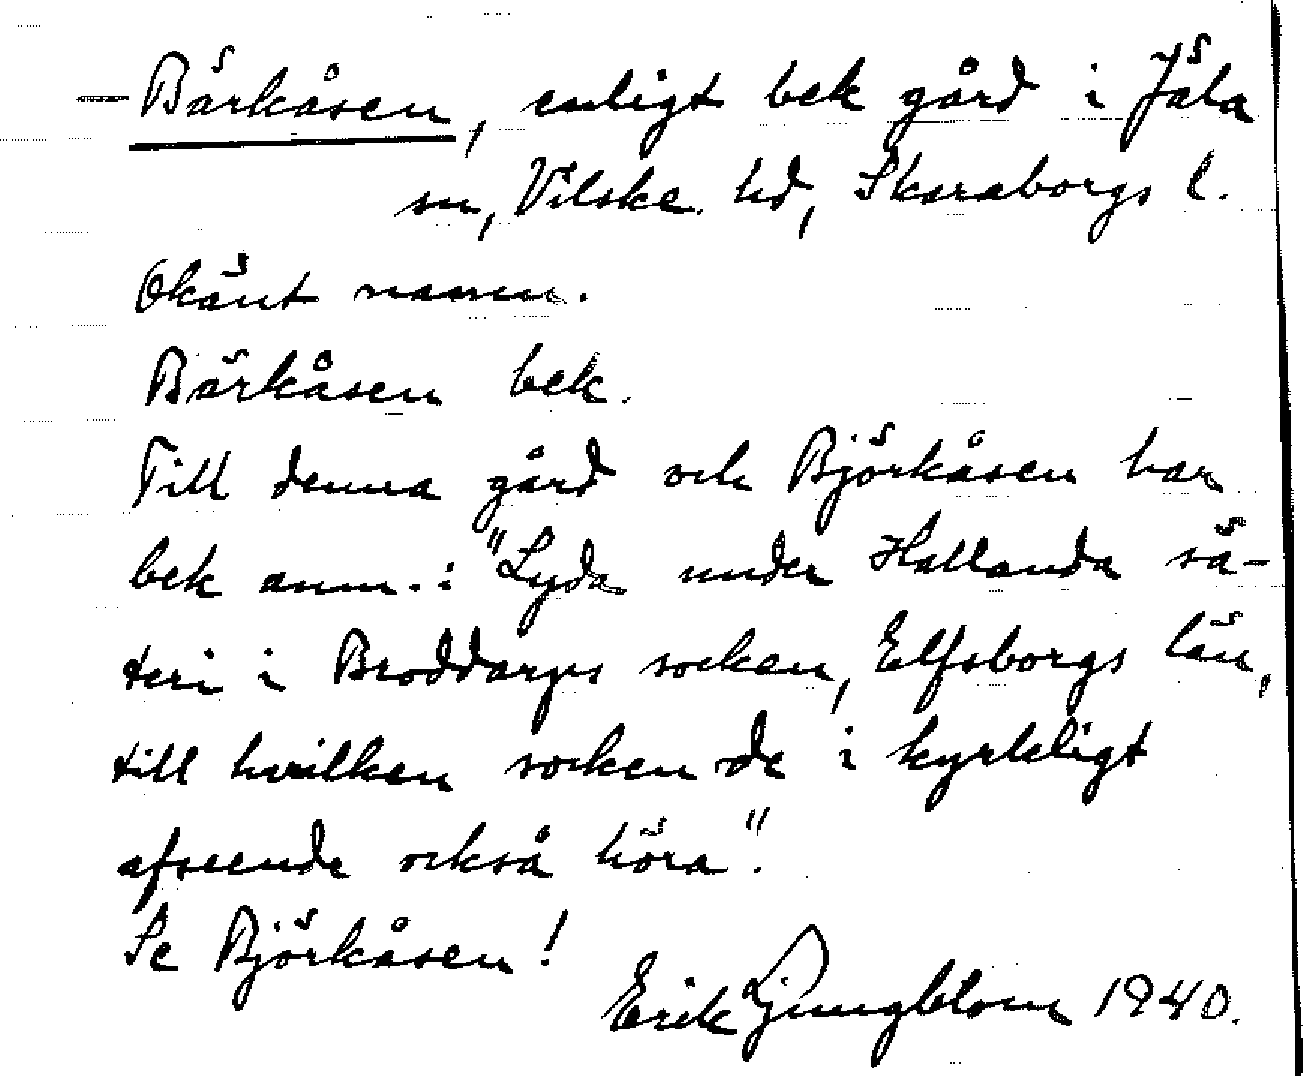 Bärkåsen, enligt bek gård i Jäla
sn, Vilske hd, Skaraborgs l.
Okänt namn.
Bärkåsen bek.
Till denna gård och Björkåsen har
bek anm.: "Lyda under Hallanda sä-
teri i Broddarps socken, Elfsborgs län,
till hvilken socken de i kyrkligt
afseende också höra".
Se Björkåsen!
Erik Ljungblom 1940.